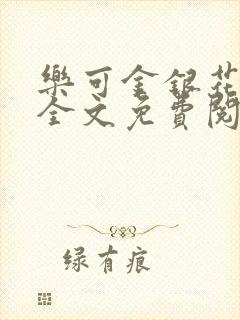 樂可金銀花
全文免費閱
绿有痕